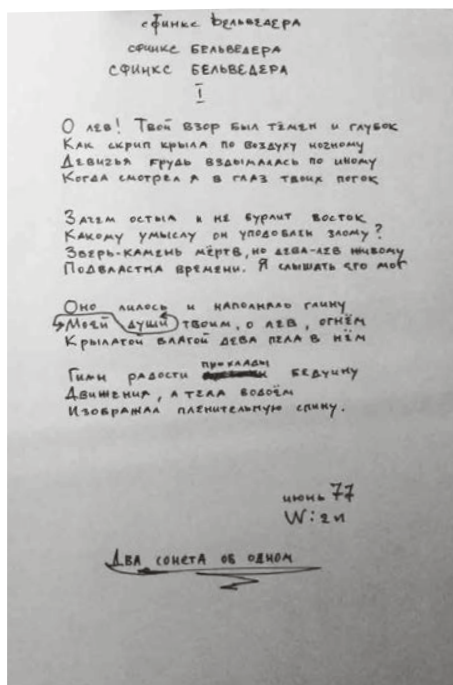 СФИНКС БЕЛЬВЕДЕРА
СФИНКС БЕЛЬВЕДЕРА
СФИНКС БЕЛЬВЕДЕРА
I
О лев! Твой взор был тёмен и глубок
Как скрип крыла по воздуху ночному
Девичья грудь вздымалась по иному
Когда смотрел я в глаз твоих поток
Зачем остыл и не бурлит восток
Какому умыслу он уподоблен злому?
Зверь-камень мёртв, но дева-лев живому
Подвластна времени. Я слышать его мог
Оно лилось и наполняло глину
Моей души твоим, о лев, огнём
Крылатой влагой дева пела в нём
Гимн радости прохлады бедуину
Движения, а тела водоём
Изображал пленительную спину.
июнь 77
W:ен
Два сонета об одном